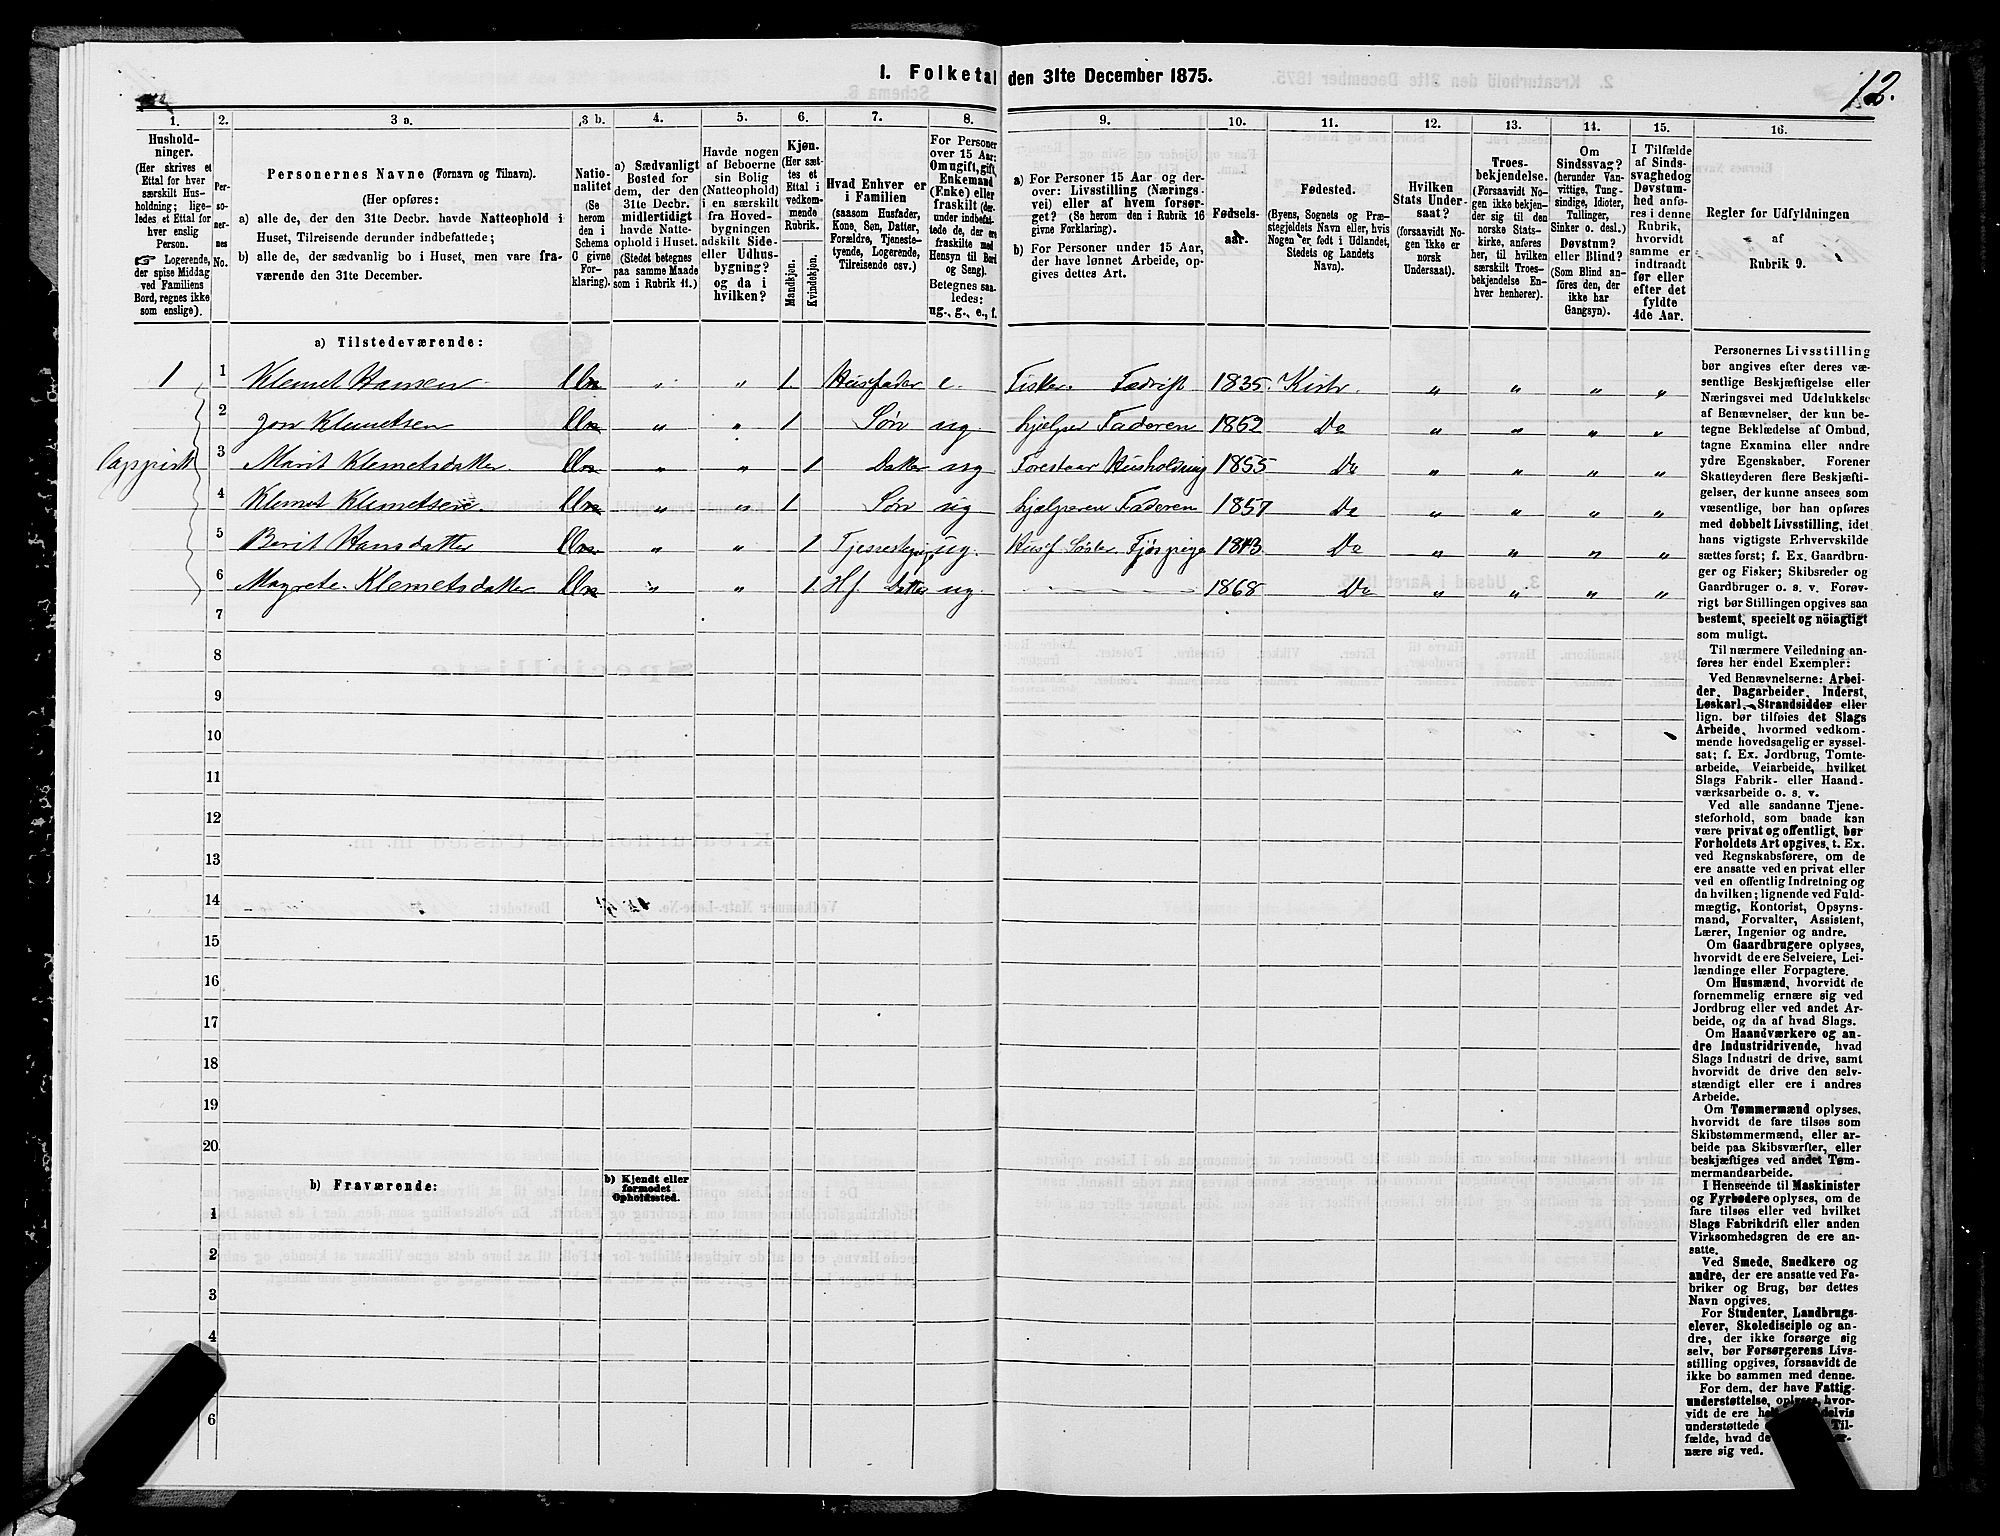 1. Folketal den 31te December 1875.
12.
1.
Hushold-
ninger.
(Her skrives et
Ettal for hver
særskilt Hus-
holdning; lige-
ledes et Ettal for
hver enslig
Person.
Logerende,
der spise Middag
ved Familiens
Bord, regnes ikke
som enslige).
2.
Per-
so-
ner-
nes
No.
3 a.
Personernes Navne (Fornavn og Tilnavn).
(Her opføres:
a) alle de, der den 31te Decbr. havde Natteophold i
Huset, Tilreisende derunder indbefattede;
b) alle de, der sædvanlig bo i Huset, men vare fra-
værende den 31te December.
3 b.
Natio-
nalitet
(Se
herom
den i
Schema
C givne
For-
klaring).
4.
a) Sædvanligt
Bosted for
dem, der den
31te Decbr.
midlertidigt
havde Natte-
ophold i Huset.
(Stedet betegnes
paa samme Maade
som i Rubrik 11.)
5.
Havde nogen
af Beboerne
sin Bolig
(Natteophold)
i en særskilt
fra Hoved-
bygningen
adskilt Side-
eller Udhus-
bygning?
og da i
hvilken?
6.
Kjøn.
(Her sæt-
tes et
Ettal i
vedkom-
mende
Rubrik.
Mandkjøn.
Kvindekjøn.
7.
Hvad Enhver er
i Familien
(saasom Husfader,
Kone, Søn, Datter,
Forældre, Tjeneste-
tyende, Logerende,
Tilreisende osv.)
8.
For Personer
over 15 Aar:
Om ugift, gift,
Enkemand
(Enke) eller
fraskilt
ug., g., e., f.
9.
a) For Personer 15 Aar og der-
over: Livsstilling (Nærings-
vei) eller af hvem forsør-
get? (Se herom den i Rubrik 16
givne Forklaring).
b) For Personer under 15 Aar,
der have lønnet Arbeide, op-
gives dettes Art.
10.
Fødsels-
aar.
11.
Fødested.
(Byens, Sognets og Præ-
stegjeldets Navn eller, hvis
Nogen er født i Udlandet,
Stedets og Landets
Navn).
12.
Hvilken
Stats Under-
saat?
(forsaavidt No-
gen ikke er
norsk
Undersaat).
13.
Troes-
bekjendelse.
(Forsaavidt No-
gen ikke bekjen-
der sig til den
norske Stats-
kirke, anføres
her, til hvilken
særskilt Troes-
bekjendelse En-
hver henhører).
14.
Om
Sindssvag?
(herunder Van-
vittige, Tung-
sindige, Idioter,
Tullinger,
Sinker o. desl.)
Døvstum?
eller Blind?
(Som Blind an-
føres den, der
ikke har
Gangsyn).
15.
I Tilfælde
af Sinds-
svaghed og
Døvstum-
hed anfø-
res i denne
Rubrik,
hvorvidt
samme er
indtraadt
før eller
efter det
fyldte
4de Aar.
16.
Regler for Udfyldningen
af
Rubrik 9.
a) Tilstedeværende:
1 1 Klemet Hansen " " 1 Husfader e. Fisker. Fædrift 1835. Kistr. " " " "
2 Jon Klemetsen " " 1 Søn ug hjelper Faderen 1852 Do " " " "
3 Marit Klemetsdatter " " 1 Datter ug Forestaar Husholdning 1855 Do " " " "
4 Klemet Klemetsen " " 1 Søn ug hjelper en Faderen 1857 Do " " " "
5 Berit Hansdatter " " 1 ug. Husf Søster Fjøspige Do " " " "
6 Magrete Klemetsdatter " " 1 Hf. Datter ug. 1868 Do " " " "
7
8
9
10
11
12
13
14
15
16
17
18
19
20
b) Fraværende:
b) Kjendt eller
formodet
Opholdssted.
1
2
3
4
6
Personernes Livsstilling
bør angives efter deres væ-
sentlige Beskjæftigelse eller
Næringsvei med Udelukkelse
af Benævnelser, der kun be-
tegne Beklædelse af Ombud,
tagne Examina eller andre
ydre Egenskaber. Forener
Skatteyderen flere Beskjæfti-
gelser, der kunne ansees som
væsentlige, bør han opføres
med dobbelt Livsstilling, idet
hans vigtigste Erhvervskilde
sættes først; f. Ex. Gaardbru-
ger og Fisker; Skibsreder og
Gaardbruger o. s. v. Forøv-
rigt bør Stillingen opgives saa
bestemt, specielt og nöiagtigt
som muligt.
Til nærmere Veiledning an-
føres her endel Exempler:
Ved Benævnelserne: Arbei-
der, Dagarbeider, Inderst,
Løskarl, Strandsidder eller
lign. bør tilføies det Slags
Arbeide, hvormed vedkom-
mende hovedsagelig er syssel-
sat; f. Ex. Jordbrug, Tomte-
arbeide, Veiarbeide, hvilket
Slags Fabrik- eller Haand-
værksarbeide o. s. v.
Ved alle saadanne Tjene-
steforhold, som baade kan
være privat og offentligt, bør
Forholdets Art opgives, t. Ex.
ved Regnskabsførere, om de
ere ansatte ved en privat eller
ved en offentlig Indretning og
da hvilken; lignende ved Fuld-
mægtig, Kontorist, Opsyns-
mand, Forvalter, Assistent,
Lærer, Ingeniør og andre.
Om Gaardbrugere oplyses,
hvorvidt de ere Selveiere, Lei-
lændinge eller Forpagtere.
Om Husmænd, hvorvidt de
fornemmelig ernære sig ved
Jordbrug eller ved andet Ar-
beide, og da af hvad Slags.
Om Haandværkere og an-
dre Industridrivende, hvad
Slags Industri de drive, samt
hvorvidt de drive den selv-
stændigt eller ere i andres
Arbeide.
Om Tømmermænd oplyses,
hvorvidt de fare tilsøs som
Skibstømmermænd, eller ar-
beide paa Skibsværfter, eller
beskjæftiges ved andet Tøm-
mermandsarbeide.
I Henseende til Maskinister
og Fyrbødere oplyses, om de
fare tilsøs eller ved hvilket
Slags Fabrikdrift eller anden
Virksomhedsgren de ere an-
satte.
Ved Smede, Snedkere og
andre, der ere ansatte ved Fa-
briker og Brug, bør dettes
Navn opgives.
For Studenter, Landbrugs-
elever, Skoledisciple og an-
dre, der ikke forsørge sig
selv, bør Forsørgerens Livs-
stilling opgives, forsaavidt de
ikke bo sammen med denne.
For dem, der have Fattig-
understøttelse, oplyses, hvor-
vidt de ere
understøttede
fælde, hvad de
nære sig ved.